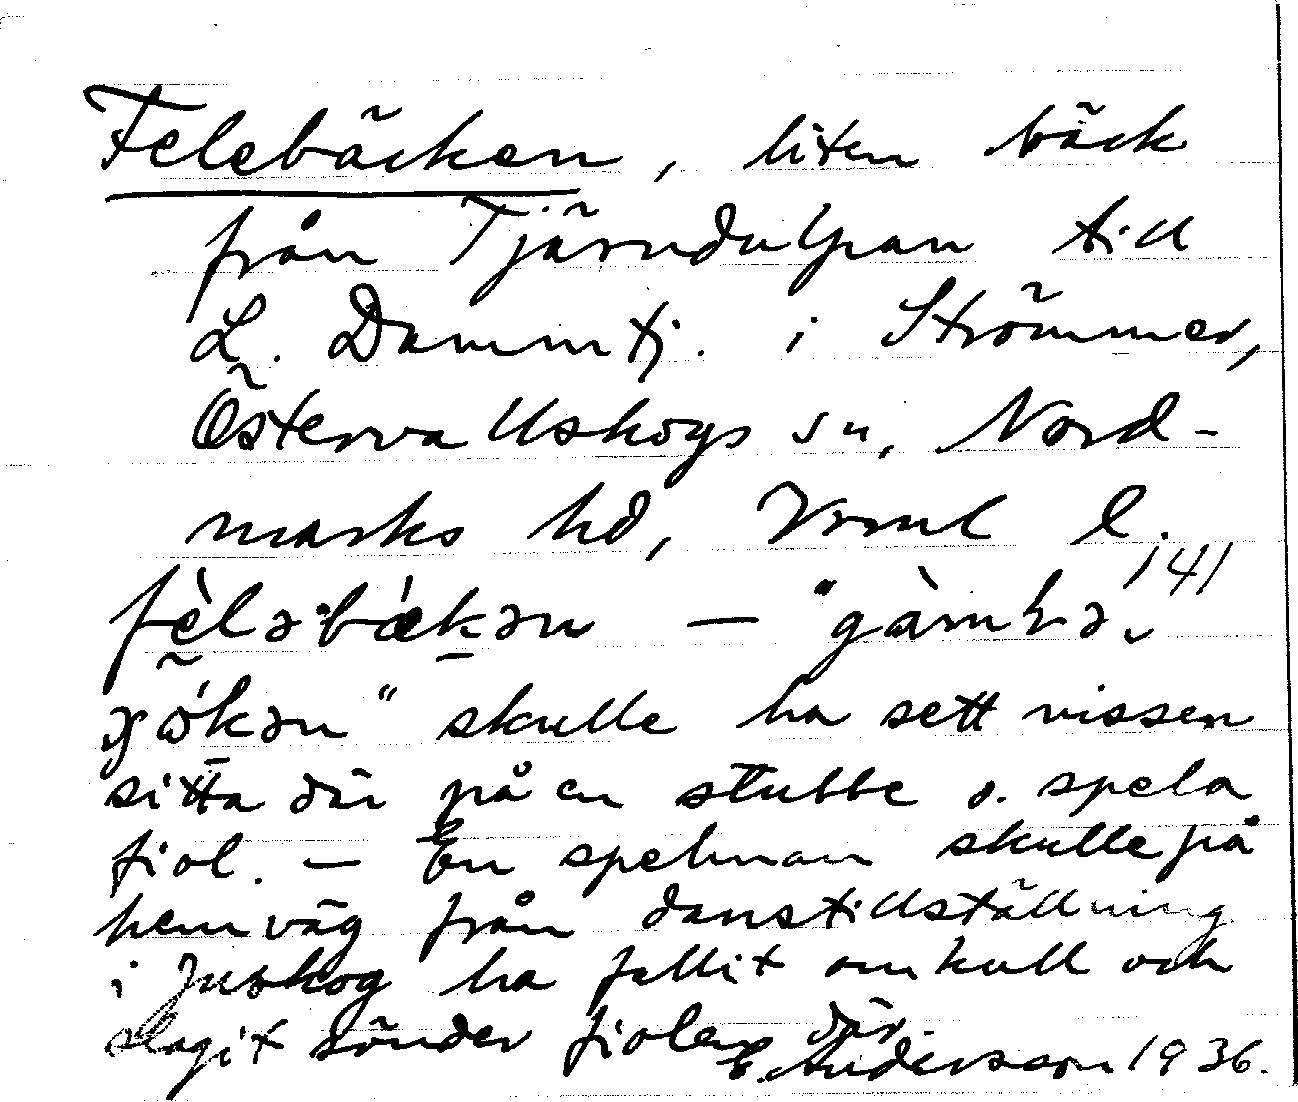 Felebäcken, liten bäck
från Tjärndalpan till
L. Dammtj. i Strömmer,
Östervallskogs sn, Nord-
marks hd, Vrml l.
141
fèləbǽkən — "gàmḷə
gókən" skulle ha sett nissen
sitta där på en stubbe o. spela
fiol. — En spelman skulle på
hemväg från danstillställning
i Juskog ha fallit omkull och
slagit sönder fiolen där.
E. Andersson 1936.